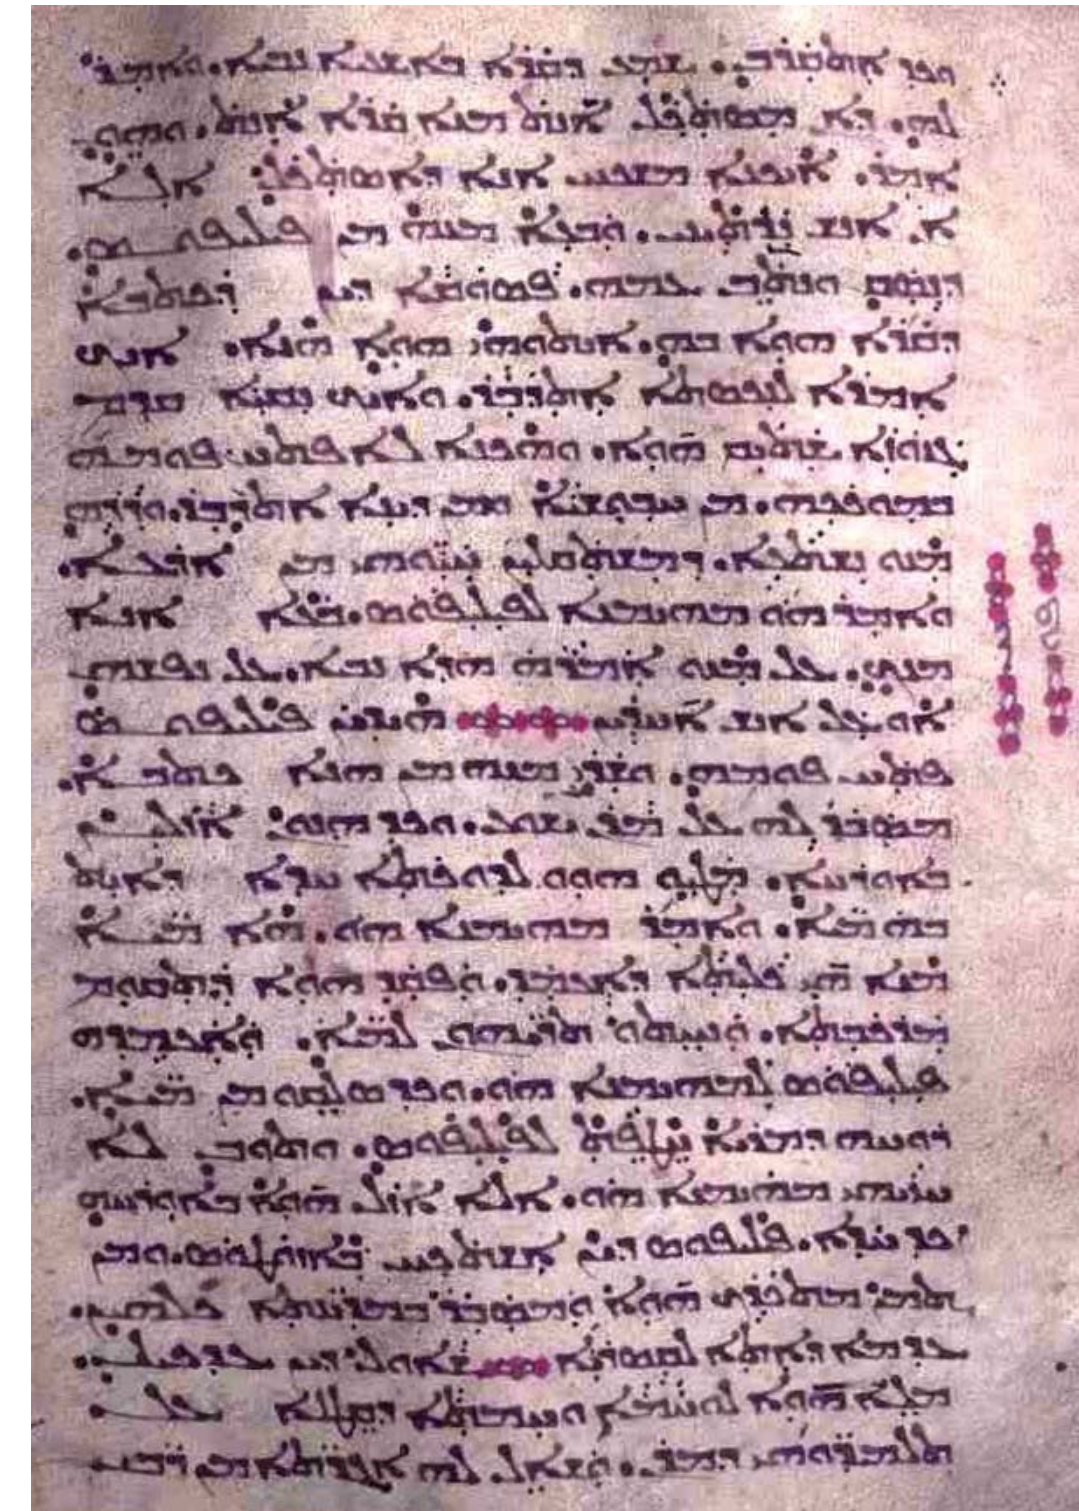 ܘܟܕ ܐܬܩܪܒ. ܫܡܥ ܕܩܪܐ ܒܐܫܥܝܐ ܢܒܝܐ. ܘܐܡܪ
ܠܗ. ܕܐܢ ܡܣܬܟܠ ܐܢܬ ܡܢܐ ܩܪܐ ܐܢܬ. ܘܗܘ
ܐܡܪ. ܐܝܟܢܐ ܡܫܟܚ ܐܢܐ ܕܐܣܬܟܠ ܐܠܐ
ܐܢ ܐܢܫ ܢܪܬܝܢܝ. ܘܒܥܐ ܡܢܗ ܡܢ ܦܝܠܝܦܘܣ.
ܕܢܣܩ ܘܢܬܒ ܥܡܗ. ܦܣܘܩܐ ܕܝܢ ܕܟܬܒܐ
ܕܩܪܐ ܗܘܐ ܒܗ. ܐܝܬܘܗܝ ܗܘܐ ܗܢܐ. ܐܝܟ
ܐܡܪܐ ܠܢܟܣܬܐ ܐܬܕܒܪ. ܘܐܝܟ ܢܩܝܐ ܩܕܡ
ܓܙܘܙܐ ܫܬܝܩ ܗܘܐ. ܘܗܟܢܐ ܠܐ ܦܬܚ ܦܘܡܗ
ܒܡܘܟܟܗ. ܡܢ ܚܒܘܫܝܐ ܘܡܢ ܕܝܢܐ ܐܬܕܒܪ. ܘܕܪܗ
ܡܢܘ ܢܫܬܥܐ. ܕܡܫܬܩܠܝܢ ܚܝܘܗܝ ܡܢ ܐܪܥܐ.
ܘܐܡܪ ܗܘ ܡܗܝܡܢܐ ܠܦܝܠܝܦܘܣ. ܒܥܐ ܐܢܐ
ܡܢܟ. ܥܠ ܡܢܘ ܐܡܪܗ ܗܕܐ ܢܒܝܐ. ܥܠ ܢܦܫܗ
ܐܘ ܥܠ ܐܢܫ ܐܚܪܝܢ ܗܝܕܝܢ ܦܝܠܝܦܘܣ
ܦܬܚ ܦܘܡܗ. ܘܫܪܝ ܡܢܗ ܡܢ ܗܢܐ ܟܬܒܐ.
ܡܣܒܪ ܠܗ ܥܠ ܡܪܢ ܝܫܘܥ. ܘܟܕ ܗܢܘܢ ܐܙܠܝܢ
ܒܐܘܪܚܐ. ܡܛܝܘ ܗܘܘ ܠܕܘܟܬܐ ܚܕܐ ܕܐܝܬ
ܒܗ ܡܝܐ. ܘܐܡܪ ܡܗܝܡܢܐ ܗܘ. ܗܐ ܡܝܐ
ܡܢܐ ܗܝ ܟܠܝܬܐ ܕܐܥܡܕ. ܘܦܩܕ ܗܘܐ ܕܬܩܘܡ
ܡܪܟܒܬܐ. ܘܢܚܬܘ ܬܪܝܗܘܢ ܠܡܝܐ. ܘܐܥܡܕܗ
ܦܝܠܝܦܘܣ ܠܡܗܝܡܢܐ ܗܘ. ܘܟܕ ܣܠܩܘ ܡܢ ܡܝܐ.
ܪܘܚܗ ܕܡܪܝܐ ܚܛܦܬ ܠܦܝܠܝܦܘܣ. ܘܬܘܒ ܠܐ
ܚܙܝܗܝ ܡܗܝܡܢܐ ܗܘ. ܐܠܐ ܐܙܠ ܗܘܐ ܒܐܘܪܚܗ
ܟܕ ܚܕܐ. ܦܝܠܝܦܘܣ ܕܝܢ ܐܫܬܟܚ ܒܐܙܘܛܘܣ. ܘܡܢ
ܬܡܢ ܡܬܟܪܟ ܗܘܐ ܘܡܣܒܪ ܒܡܕܝܢܬܐ ܟܠܗܝܢ.
ܥܕܡܐ ܕܐܬܐ ܠܩܣܪܝܐ ܫܐܘܠ ܕܝܢ ܥܕܟܝܠ.
ܡܠܐ ܗܘܐ ܠܘܚܡܐ ܘܚܡܬܐ ܕܩܛܠܐ ܥܠ
ܬܠܡܝܕܘܗܝ ܕܡܪܢ. ܘܫܐܠ ܠܗ ܐܓܪܬܐ ܡܢ ܪܒܝ